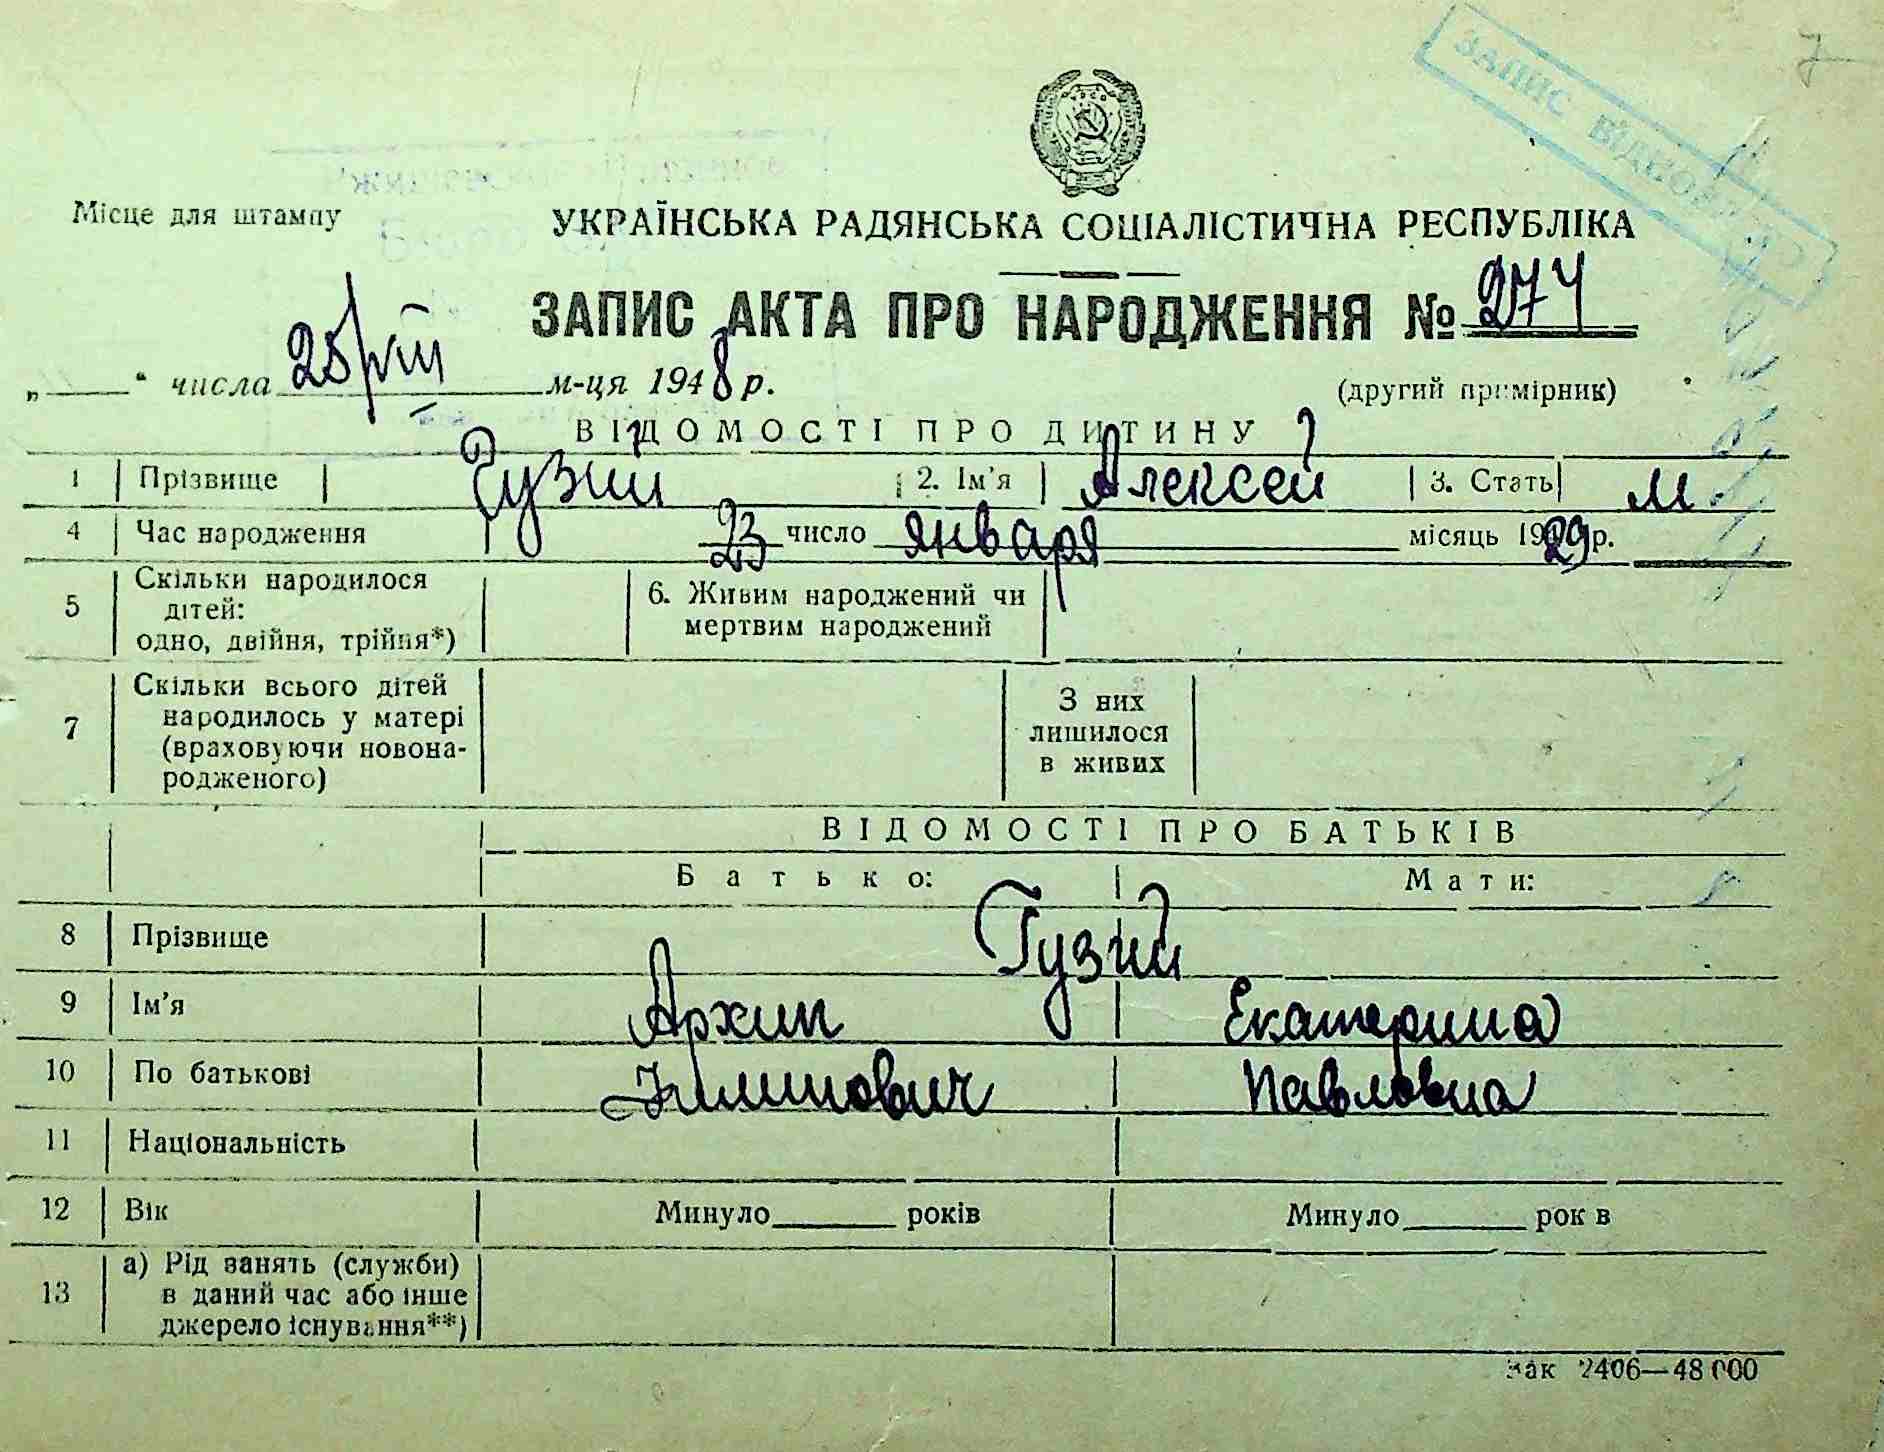 7
ЗАПИС ВІДНОВЛЕНО
Місце для штампу
УКРАЇНСЬКА РАДЯНСЬКА СОЦІАЛІСТИЧНА РЕСПУБЛІКА
ЗАПИС АКТА ПРО НАРОДЖЕННЯ № 274
„ “ числа 25/VIII м-ця 1948 р. (другий примірник)
ВІДОМОСТІ ПРО ДИТИНУ
1 Прізвище Гузий 2. Ім'я Алексей 3. Стать м.
4 Час народження 23 число января місяць 1929 р.
5 Скільки народилося дітей: одно, двійня, трійня*) 6. Живим народжений чи мертвим народжений
7 Скільки всього дітей народилось у матері (враховуючи новонародженого) З них лишилося в живих
ВІДОМОСТІ ПРО БАТЬКІВ
Батько: Мати:
8 Прізвище Гузий
9 Ім'я Архип Екатерина
10 По батькові Павловна
11 Національність
12 Вік Минуло років Минуло рок в
13 а) Рід занять (служби) в даний час або інше джерело існування**)
Зак 2406—48 000